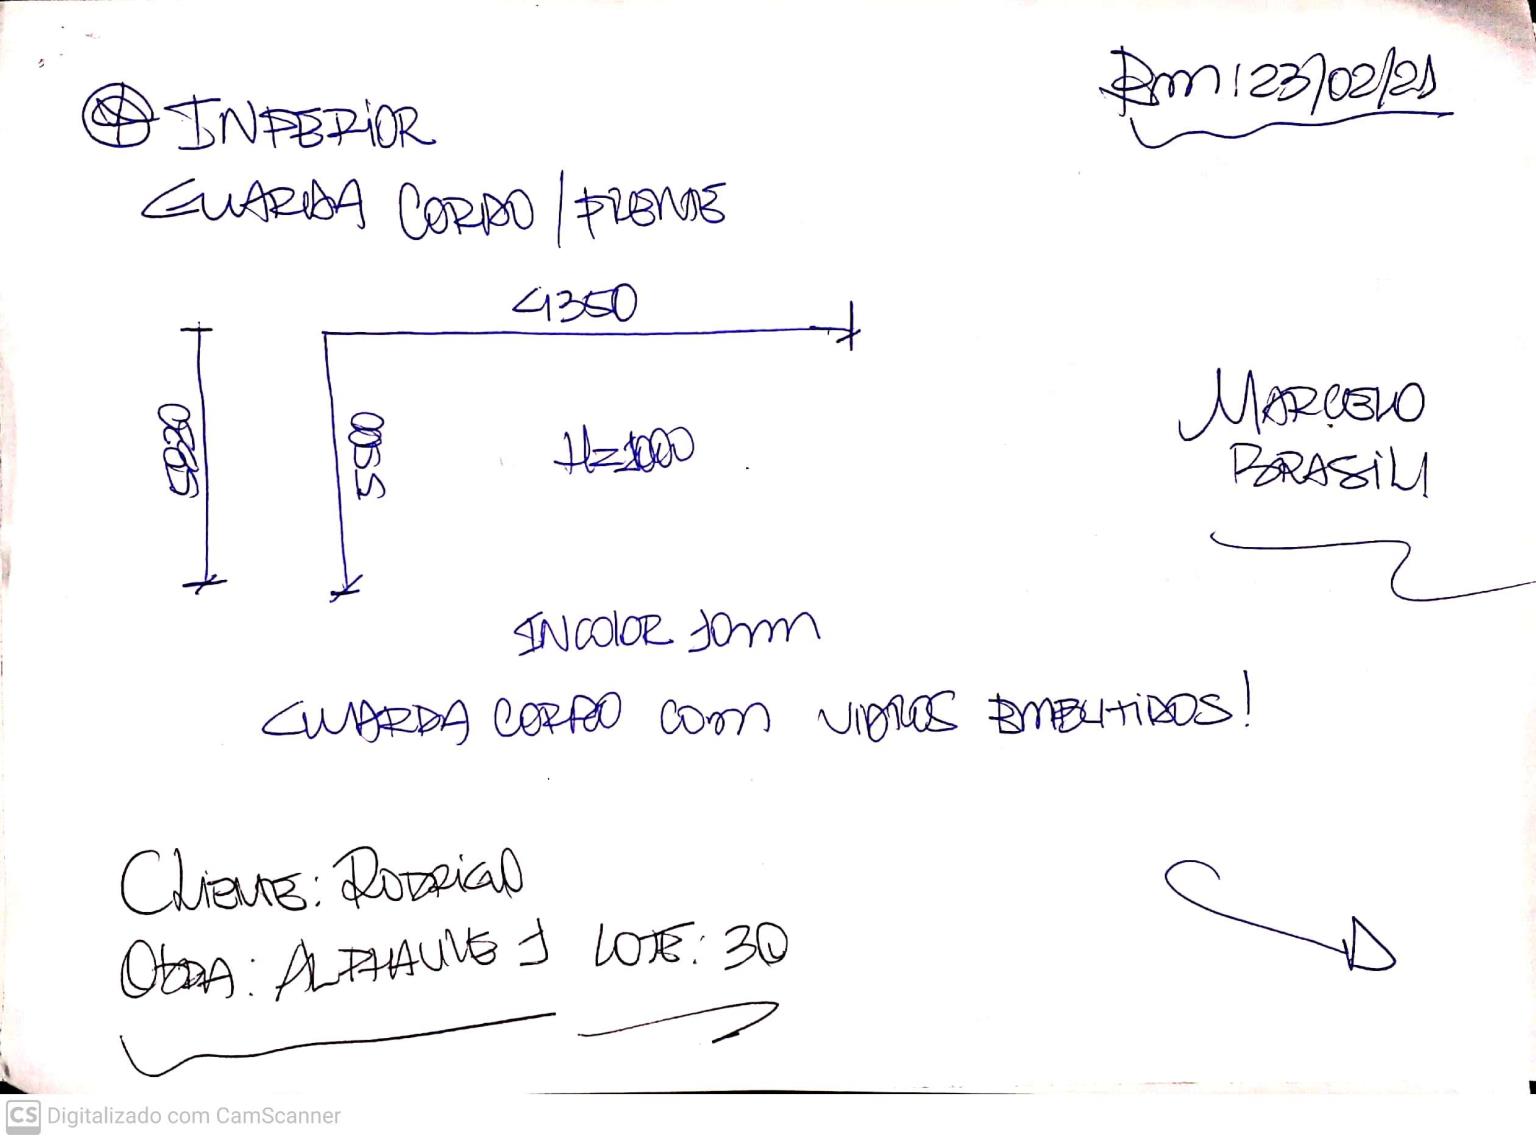 Rm: 23/02/21
INFERIOR
GUARDA CORPO / FRENTE
4350
5500
H=1000
MARCELO
BRASIL
INCOLOR 10mm
GUARDA CORPO COM VIDROS EMBUTIDOS!
CLIENTE: RODRIGO
OBRA: ALPHAVILLE 1 LOTE: 30
CS Digitalizado com CamScanner